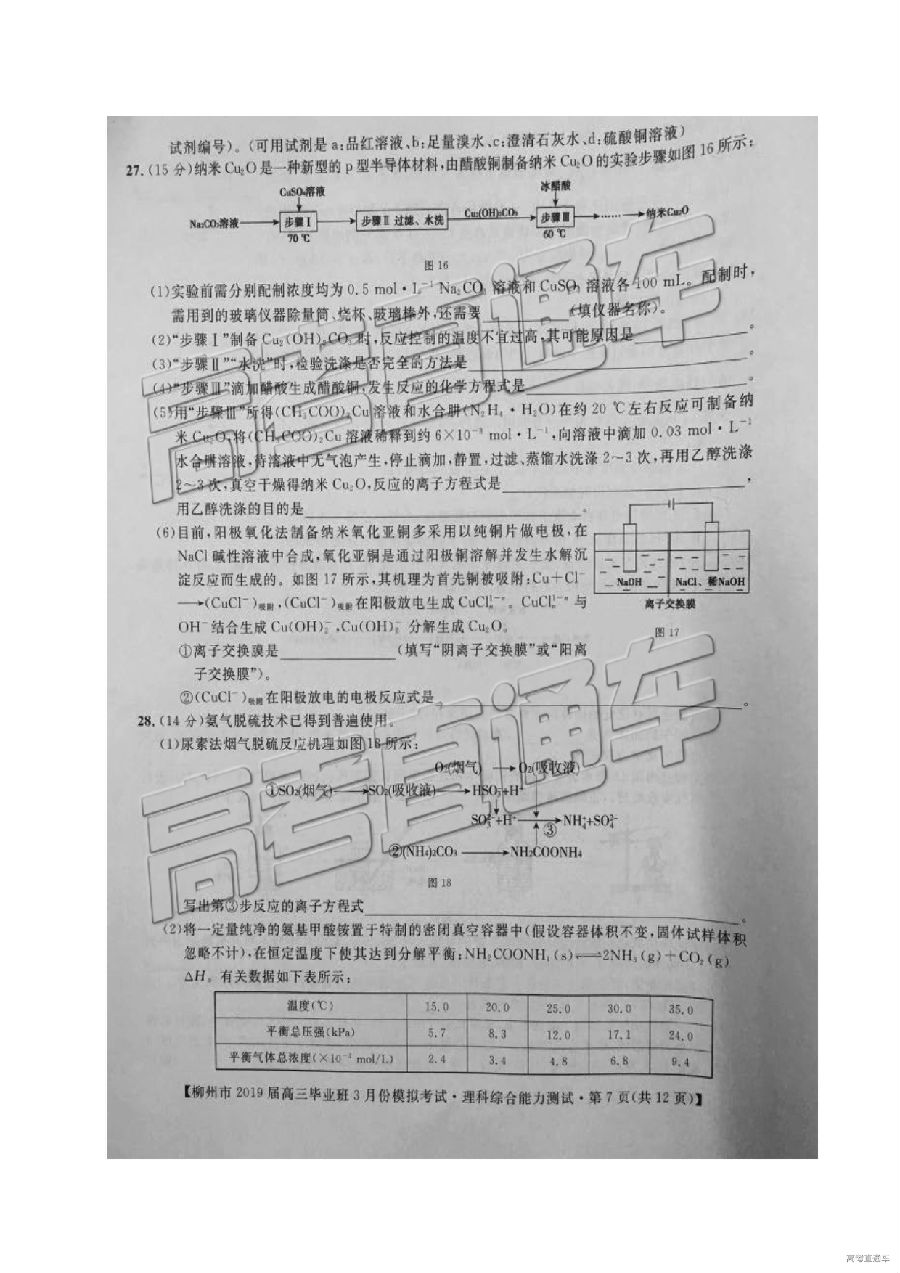 试剂编号)。(可用试剂是 a:品红溶液、b:足量溴水、c:澄清石灰水、d:硫酸铜溶液)
27.(15 分)纳米 Cu₂O 是一种新型的 p 型半导体材料,由醋酸铜制备纳米 Cu₂O 的实验步骤如图 16 所示:
CuSO₄溶液
冰醋酸
Na₂CO₃溶液 步骤Ⅰ 步骤Ⅱ 过滤、水洗 Cu₂(OH)₂CO₃ 步骤Ⅲ …… 纳米Cu₂O
70 ℃ 60 ℃
图 16
(1)实验前需分别配制浓度均为 0.5 mol·L⁻¹ Na₂CO₃ 溶液和 CuSO₄ 溶液各 100 mL。配制时,
需用到的玻璃仪器除量筒、烧杯、玻璃棒外,还需要 (填仪器名称)。
(2)“步骤Ⅰ”制备 Cu₂(OH)₂CO₃ 时,反应控制的温度不宜过高,其可能原因是 。
(3)“步骤Ⅱ”“水洗”时,检验洗涤是否完全的方法是 。
(4)“步骤Ⅲ”滴加醋酸生成醋酸铜,发生反应的化学方程式是 。
(5)用“步骤Ⅲ”所得(CH₃COO)₂Cu 溶液和水合肼(N₂H₄·H₂O)在约 20 ℃左右反应可制备纳
米 Cu₂O,将(CH₃COO)₂Cu 溶液稀释到约 6×10⁻³ mol·L⁻¹,向溶液中滴加 0.03 mol·L⁻¹
水合肼溶液,待溶液中无气泡产生,停止滴加,静置,过滤、蒸馏水洗涤 2~3 次,再用乙醇洗涤
2~3 次,真空干燥得纳米 Cu₂O,反应的离子方程式是 ,
用乙醇洗涤的目的是 。
(6)目前,阳极氧化法制备纳米氧化亚铜多采用以纯铜片做电极,在
NaCl 碱性溶液中合成,氧化亚铜是通过阳极铜溶解并发生水解沉
淀反应而生成的。如图 17 所示,其机理为首先铜被吸附:Cu+Cl⁻
⟶(CuCl⁻)吸附,(CuCl⁻)吸附在阳极放电生成 CuClₙ¹⁻ⁿ。CuClₙ¹⁻ⁿ 与
OH⁻结合生成 Cu(OH)₂⁻,Cu(OH)₂⁻ 分解生成 Cu₂O。
NaOH NaCl、稀NaOH
离子交换膜
图 17
①离子交换膜是 (填写“阴离子交换膜”或“阳离
子交换膜”)。
②(CuCl⁻)吸附在阳极放电的电极反应式是 。
28.(14 分)氨气脱硫技术已得到普遍使用。
(1)尿素法烟气脱硫反应机理如图 18 所示:
O₂(烟气) ⟶ O₂(吸收液)
①SO₂(烟气) ⟶ SO₂(吸收液) ⟶ HSO₃⁻+H⁺
SO₃²⁻+H⁺ ⟶ NH₄⁺+SO₄²⁻
③
②(NH₄)₂CO₃ ⟶ NH₂COONH₄
图 18
写出第③步反应的离子方程式 。
(2)将一定量纯净的氨基甲酸铵置于特制的密闭真空容器中(假设容器体积不变,固体试样体积
忽略不计),在恒定温度下使其达到分解平衡:NH₂COONH₄(s)⇌2NH₃(g)+CO₂(g)
ΔH。有关数据如下表所示:
温度(℃) 15.0 20.0 25.0 30.0 35.0
平衡总压强(kPa) 5.7 8.3 12.0 17.1 24.0
平衡气体总浓度(×10⁻³ mol/L) 2.4 3.4 4.8 6.8 9.4
【柳州市 2019 届高三毕业班 3 月份模拟考试·理科综合能力测试·第 7 页(共 12 页)】
高考直通车
高考直通车
高考直通车